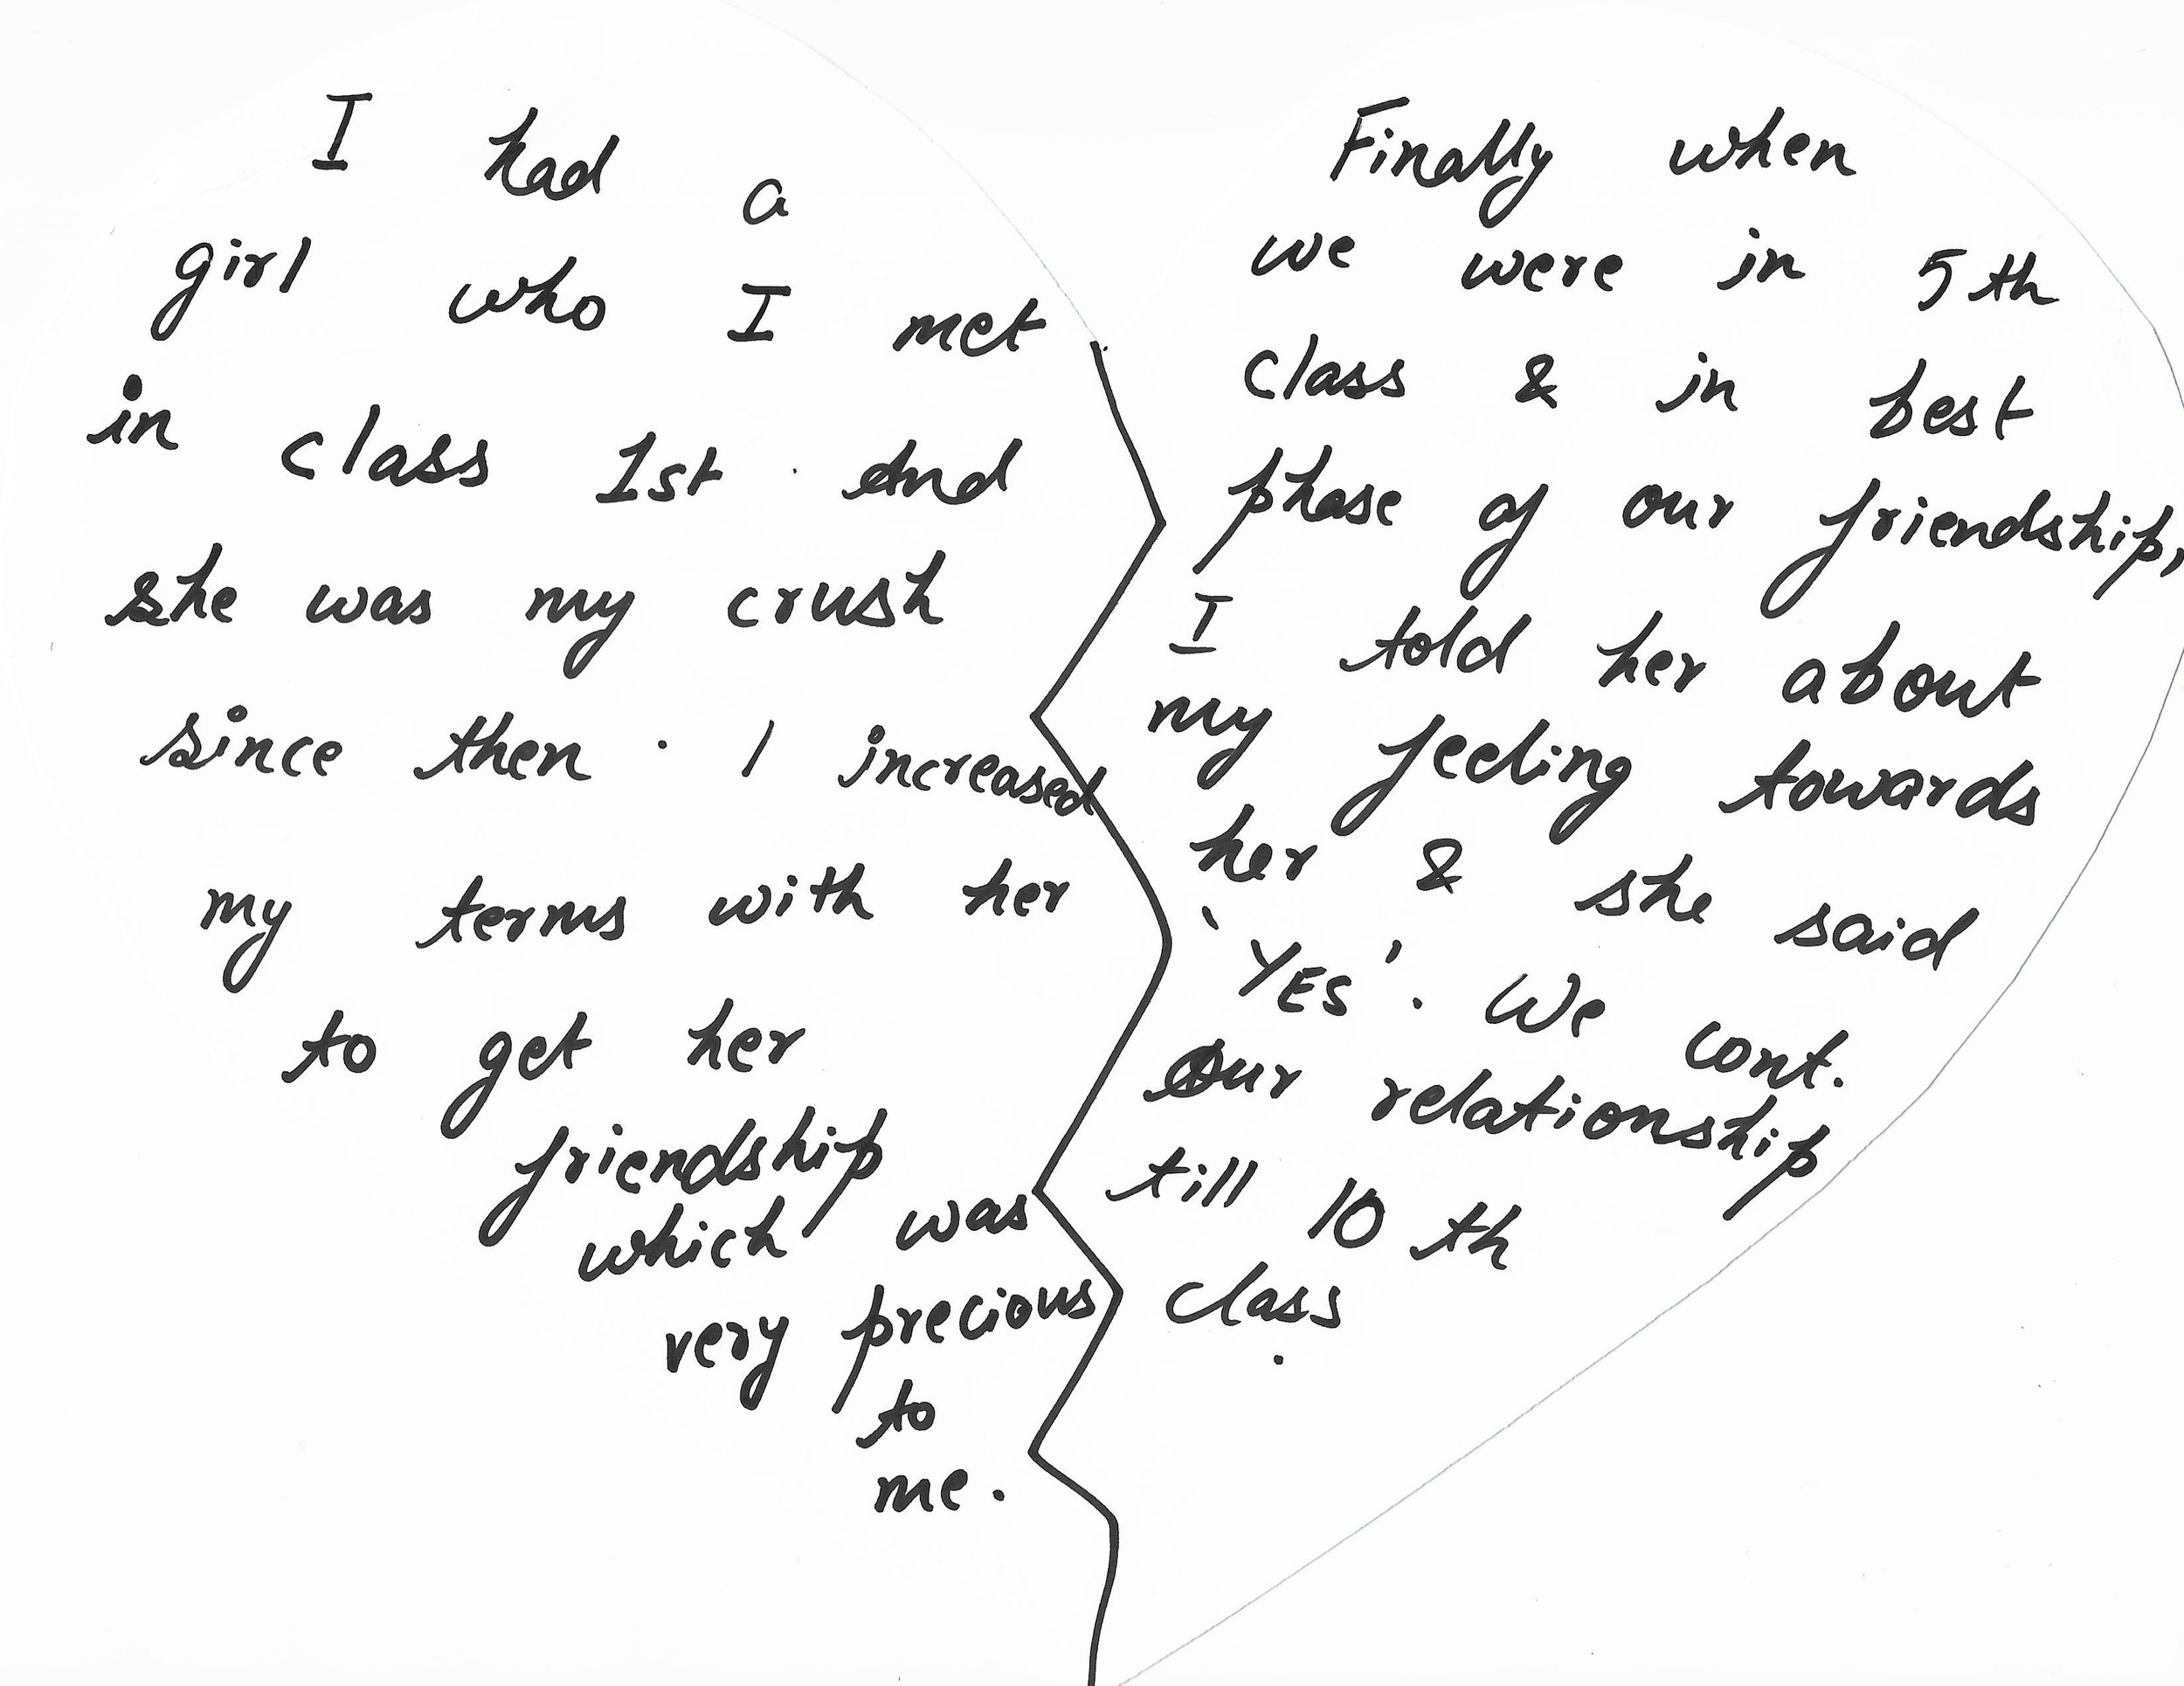 I had a
girl who I met
in class 1st. And
she was my crush
since then. I increased
my terms with her
to get her
friendship
which was
very precious
to
me.
Finally when
we were in 5th
class & in best
phase of our friendship,
I told her about
my feeling towards
her & she said
'YES'. We cont.
our relationship
till 10th
class.